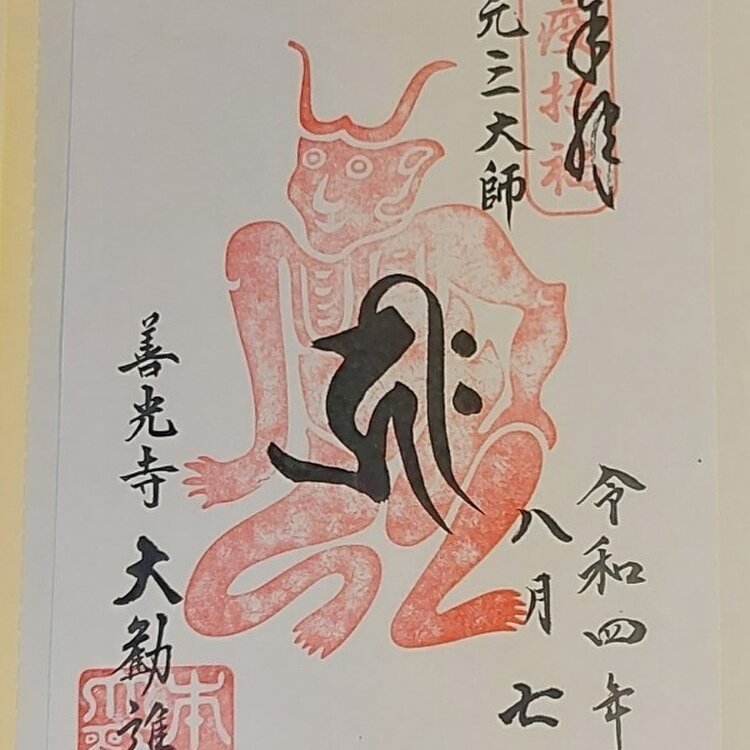 奉拝
疫招福
元三大師
令和四年
八月七
善光寺 大勧進